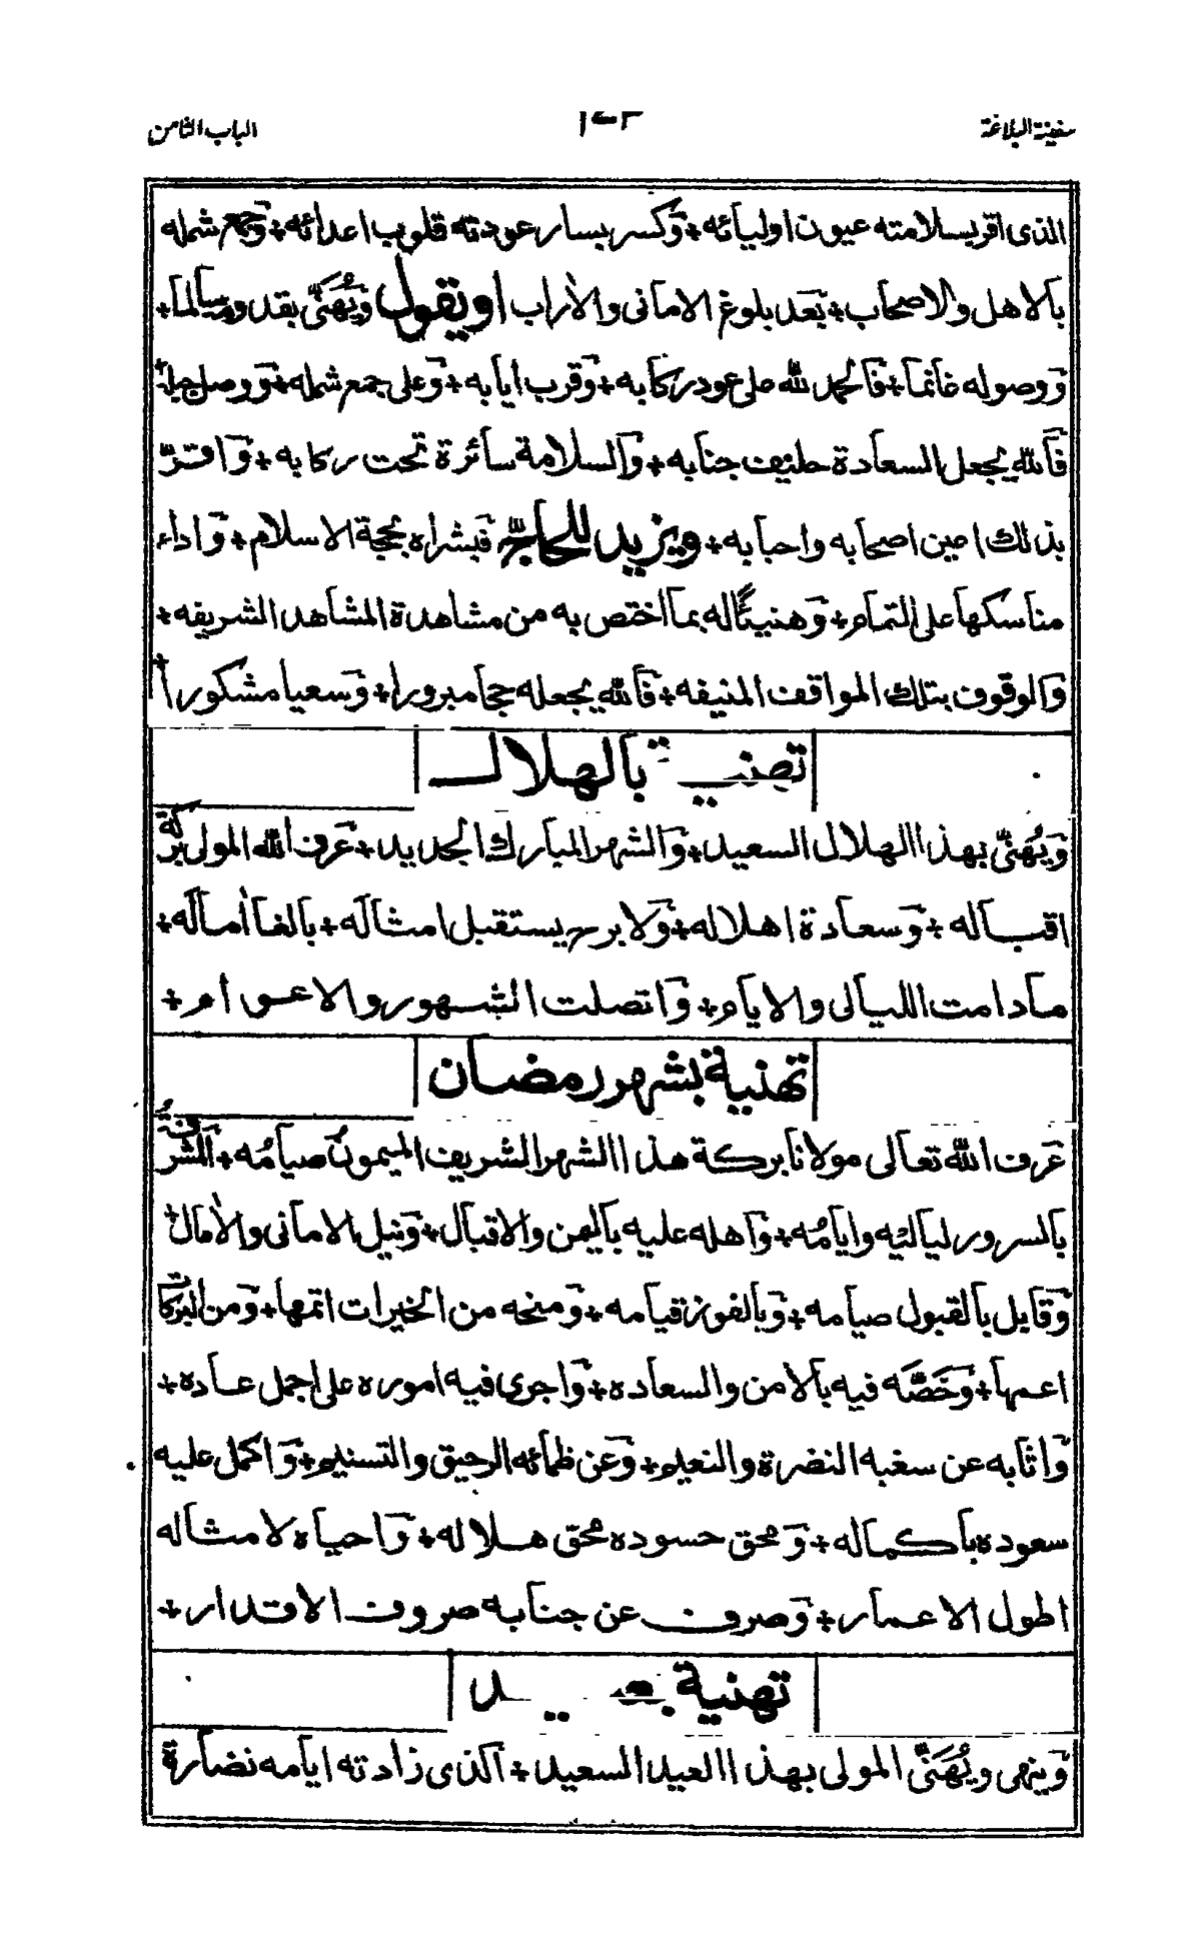 سفينة البلاغة
الباب الثامن
الذى اقر بسلامته عيون اوليآئه + وَكسر بسار عودته قلوب اعدائه + وَجمع شمله
بآلاهل والاصحاب + بَعد بلوغ الامانى والاٰراب او يقول وَيُهَنَّى بقدومه سآلمآ +
وَوصوله غآنمآ + فَآلحمد لله على عود ركآبه + وَقرب ايآبه + وَعلى جمع شمله +
فَآلله يجعل السعآدة حليف جنآبه + وَآلسلامة سآئرة تحت ركآبه + وَاقرّ
بذلك اعين اصحآبه واحبآبه + ويزيد للحاجّ فَبشراه بحجة الاسلام + وَاداء
منآسكهآ على التمآم + وَهنيئًا له بمآ اختص به من مشآهدة المشآهد الشريفه +
وَآلوقوف بتلك المواقف المنيفه + فَآلله يجعله حجآ مبرورا + وَسعيا مشكورا +
تهنية بآلهلال
وَيُهَنَّى بهذا الهلال السعيد + وَآلشهر المبآرك الجديد + عَرف الله المولى بركة
اقبـآله + وَسعآدة اهلاله + وَلا برح يستقبل امثآله + بآلغآ اٰمآله +
مآدامت الليآلى والايآم + وَاتصلت الشهور والاعوام +
تهنية بشهر رمضان
عَرف الله تعآلى مولانآ بركة هذا الشهر الشريف الميمون صيآمُه + آلمشرفةُ
بآلسرور ليآليْه وايآمُه + وَآهله عليه بآليمن والاقبآل + وَنيل الامآنى والاٰمآل +
وَقآبل بآلقبول صيآمه + وَبآلفوز قيآمه + وَمنحه من الخيرات اتمهآ + وَمن البركات
اعمهآ + وَخَصَّه فيه بآلامن والسعآده + وَاجرى فيه اموره على اجمل عآده +
وَاثآبه عن سغبه النضرة والنعيم + وَعن ظمآئه الرحيق والتسنيم + وَاكمل عليه
سعوده بآكمآله + وَمحق حسوده محق هلاله + وَاحيآه لامثآله
اطول الاعمآر + وَصرف عن جنآبه صروف الاقدار +
تهنية بعيد
وَينهى ويُهَنَّى المولى بهذا العيد السعيد + آلذى زادته ايآمه نضآرة